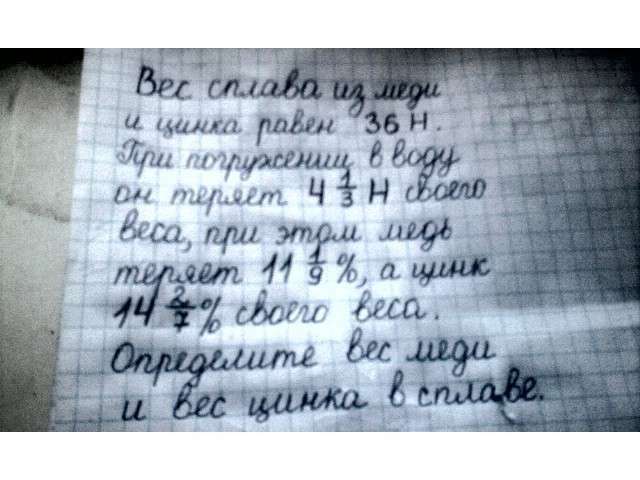 Вес сплава из меди
и цинка равен 36 Н.
При погружении в воду
он теряет 4 1/3 Н своего
веса, при этом медь
теряет 11 1/9 %, а цинк
14 2/7 % своего веса.
Определите вес меди
и вес цинка в сплаве.